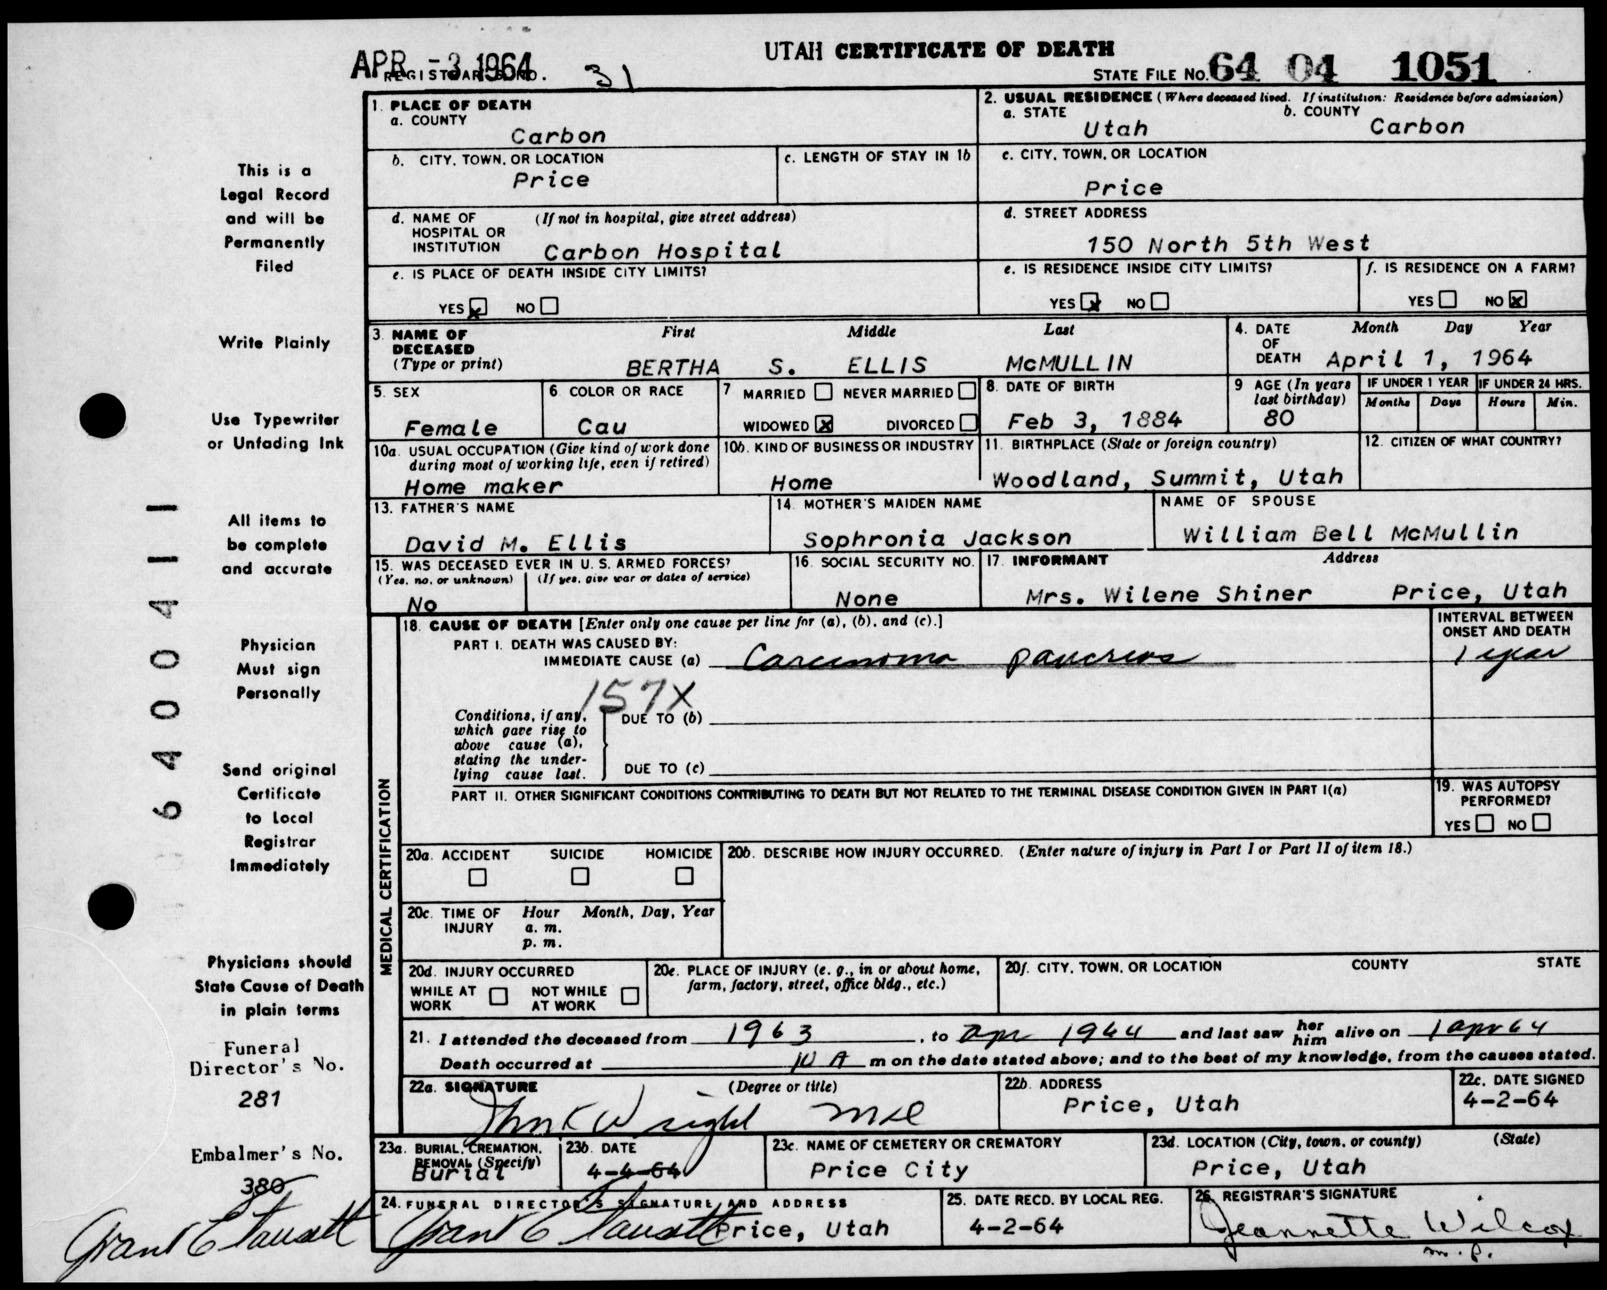 UTAH CERTIFICATE OF DEATH
APR -3 1964
REGISTRAR'S NO. 31
STATE FILE NO. 64 04 1051
1. PLACE OF DEATH
a. COUNTY
Carbon
2. USUAL RESIDENCE (Where deceased lived. If institution: Residence before admission)
a. STATE b. COUNTY
Utah Carbon
b. CITY, TOWN, OR LOCATION
Price
c. LENGTH OF STAY IN 1b
c. CITY, TOWN, OR LOCATION
Price
d. NAME OF HOSPITAL OR INSTITUTION (If not in hospital, give street address)
Carbon Hospital
d. STREET ADDRESS
150 North 5th West
e. IS PLACE OF DEATH INSIDE CITY LIMITS?
YES x NO
e. IS RESIDENCE INSIDE CITY LIMITS?
YES x NO
f. IS RESIDENCE ON A FARM?
YES NO x
3 NAME OF DECEASED (Type or print)
First Middle Last
BERTHA S. ELLIS McMULLIN
4. DATE OF DEATH Month Day Year
April 1, 1964
5. SEX
Female
6. COLOR OR RACE
Cau
7 MARRIED NEVER MARRIED
WIDOWED x DIVORCED
8. DATE OF BIRTH
Feb 3, 1884
9 AGE (In years last birthday)
80
IF UNDER 1 YEAR IF UNDER 24 HRS.
Months Days Hours Min.
10a. USUAL OCCUPATION (Give kind of work done during most of working life, even if retired)
Home maker
10b. KIND OF BUSINESS OR INDUSTRY
Home
11. BIRTHPLACE (State or foreign country)
Woodland, Summit, Utah
12. CITIZEN OF WHAT COUNTRY?
13. FATHER'S NAME
David M. Ellis
14. MOTHER'S MAIDEN NAME
Sophronia Jackson
NAME OF SPOUSE
William Bell McMullin
15. WAS DECEASED EVER IN U.S. ARMED FORCES?
(Yes, no, or unknown) (If yes, give war or dates of service)
No
16. SOCIAL SECURITY NO.
None
17. INFORMANT Address
Mrs. Wilene Shiner Price, Utah
18. CAUSE OF DEATH [Enter only one cause per line for (a), (b), and (c).]
PART I. DEATH WAS CAUSED BY:
IMMEDIATE CAUSE (a) Carcinoma pancreas
INTERVAL BETWEEN ONSET AND DEATH
1 year
157X
Conditions, if any, which gave rise to above cause (a), stating the underlying cause last.
DUE TO (b)
DUE TO (c)
PART II. OTHER SIGNIFICANT CONDITIONS CONTRIBUTING TO DEATH BUT NOT RELATED TO THE TERMINAL DISEASE CONDITION GIVEN IN PART I(a)
19. WAS AUTOPSY PERFORMED?
YES NO
MEDICAL CERTIFICATION
20a. ACCIDENT SUICIDE HOMICIDE
20b. DESCRIBE HOW INJURY OCCURRED. (Enter nature of injury in Part I or Part II of item 18.)
20c. TIME OF INJURY Hour Month, Day, Year
a. m.
p. m.
20d. INJURY OCCURRED
WHILE AT WORK NOT WHILE AT WORK
20e. PLACE OF INJURY (e. g., in or about home, farm, factory, street, office bldg., etc.)
20f. CITY, TOWN, OR LOCATION COUNTY STATE
21. I attended the deceased from 1963, to Apr 1964 and last saw her him alive on 1 apr 64
Death occurred at 10 A m on the date stated above; and to the best of my knowledge, from the causes stated.
22a. SIGNATURE (Degree or title)
John K Wright MD
22b. ADDRESS
Price, Utah
22c. DATE SIGNED
4-2-64
23a. BURIAL, CREMATION, REMOVAL (Specify)
Burial
23b. DATE
4-4-64
23c. NAME OF CEMETERY OR CREMATORY
Price City
23d. LOCATION (City, town, or county) (State)
Price, Utah
24. FUNERAL DIRECTOR'S SIGNATURE AND ADDRESS
Grant E Fausett Price, Utah
25. DATE RECD. BY LOCAL REG.
4-2-64
26. REGISTRAR'S SIGNATURE
Jeannette Wilcox
m.p.
This is a
Legal Record
and will be
Permanently
Filed
Write Plainly
Use Typewriter
or Unfading Ink
All items to
be complete
and accurate
Physician
Must sign
Personally
Send original
Certificate
to Local
Registrar
Immediately
Physicians should
State Cause of Death
in plain terms
Funeral
Director's No.
281
Embalmer's No.
380
Grant E Fausett